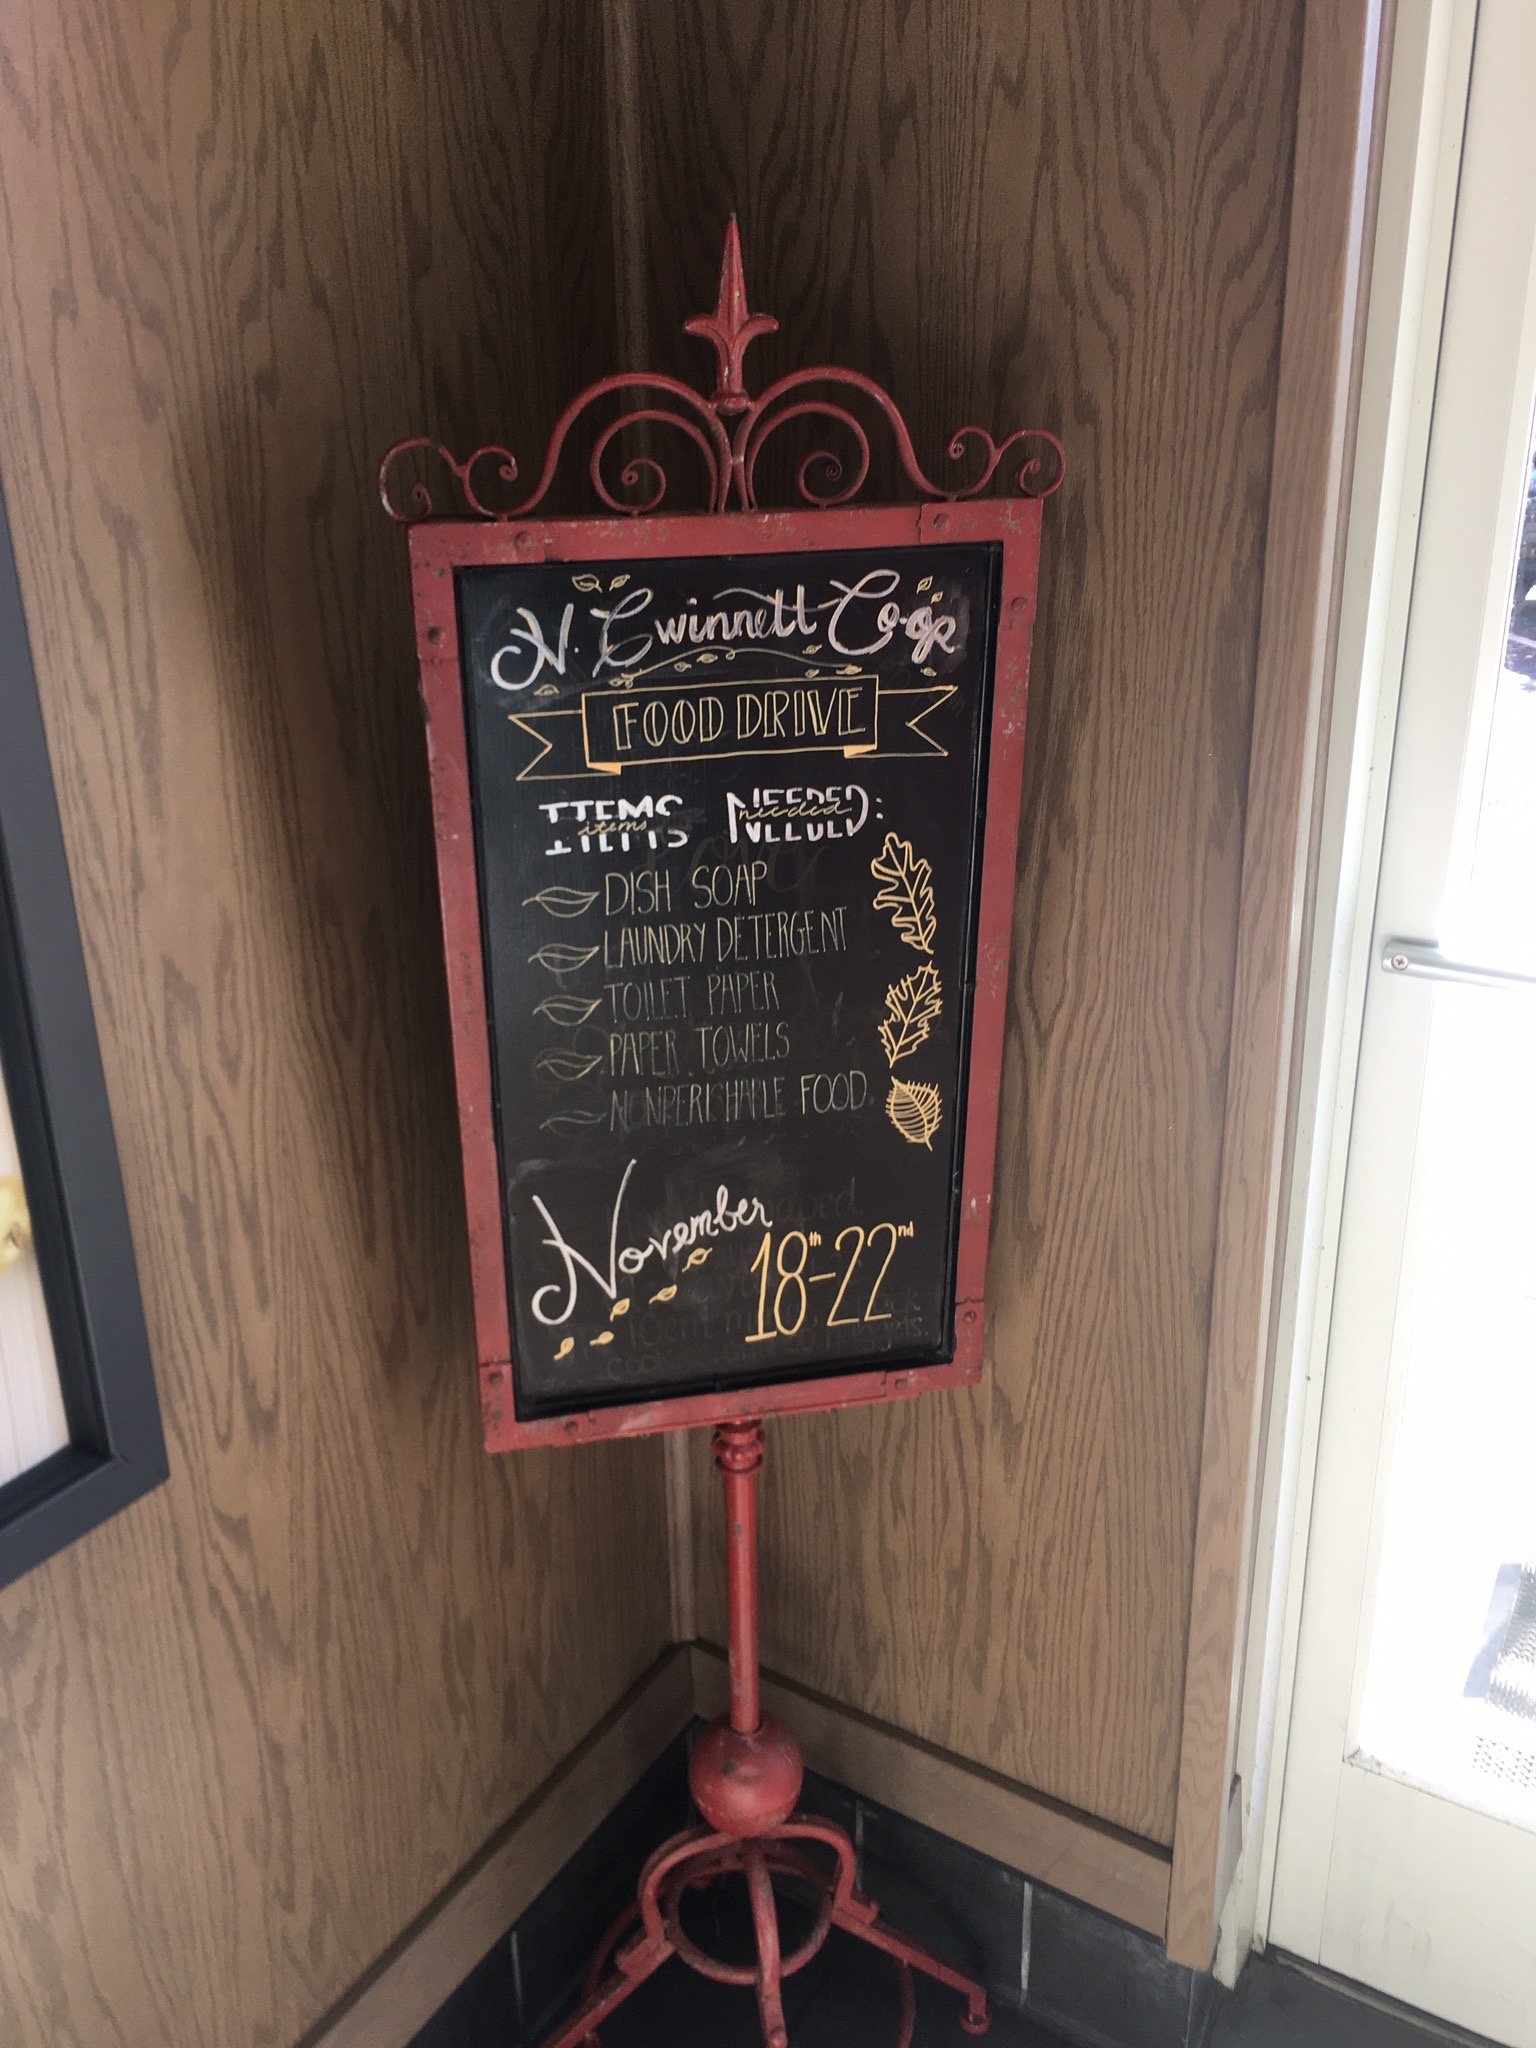 N. Gwinnett Co-op
FOOD DRIVE
ITEMS items NEEDED needed:
DISH SOAP
LAUNDRY DETERGENT
TOILET PAPER
PAPER TOWELS
NONPERISHABLE FOOD
November
18th-22nd